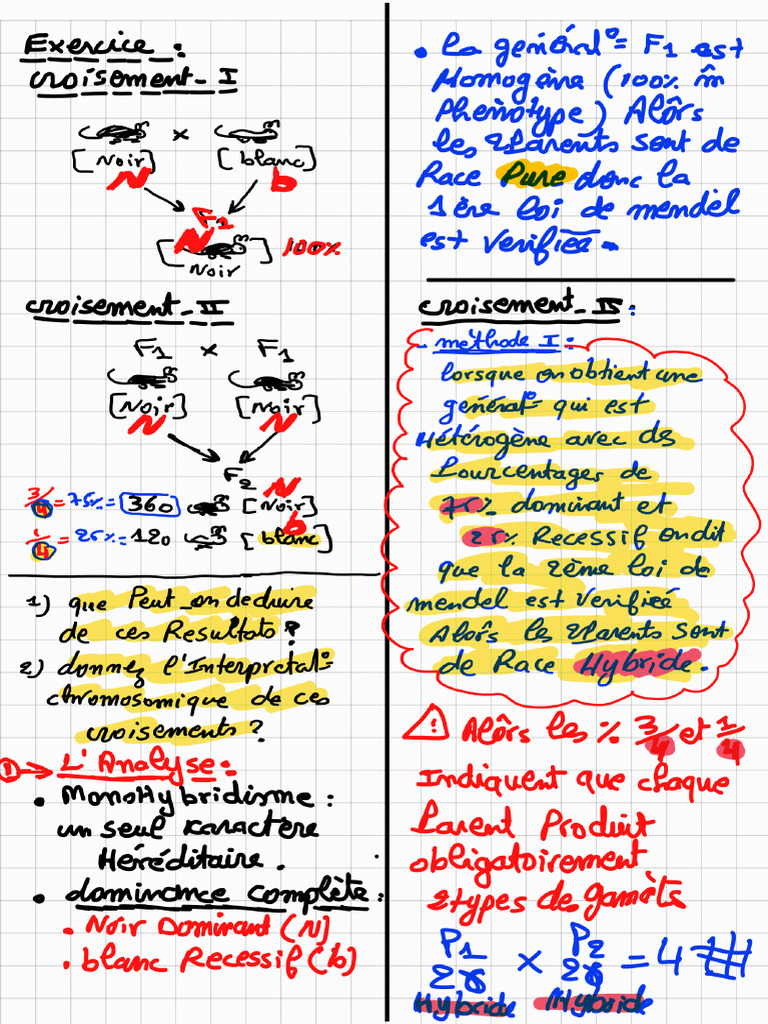 Exercice :
croisement_I
x
[Noir] [blanc]
N b
F1
N
[ ] 100%
Noir
croisement_II
F1 x F1
[Noir] [Noir]
N N
F2
N
3/4 = 75% = 360 [Noir]
b
1/4 = 25% = 120 [blanc]
1) que Peut_on deduire
de ces Resultats ?
2) donnez l'Interprétat°
chromosomique de ces
croisements ?
1) → L'Analyse :
• MonoHybridisme :
un seul caractère
Héréditaire .
• dominance complète :
• Noir Dominant (N)
• blanc Recessif (b)
• La générat° = F1 est
Homogène (100% m̂
Phénotype) Alôrs
les 2Parents sont de
Race Pure donc la
1ère loi de mendel
est Verifieé .
croisement_II :
- méthode I :
lorsque on obtient une
générat° qui est
Hétérogène avec des
Pourcentages de
75% dominant et
25% Recessif on dit
que la 2ème loi de
mendel est Verifieé
Alôrs les 2Parents sont
de Race Hybride .
! Alôrs les % 3/4 et 1/4
Indiquent que chaque
Parent Produit
obligatoirement
2types de gamèts
P1 x P2 = 4 #
2γ 2γ
Hybride Hybride